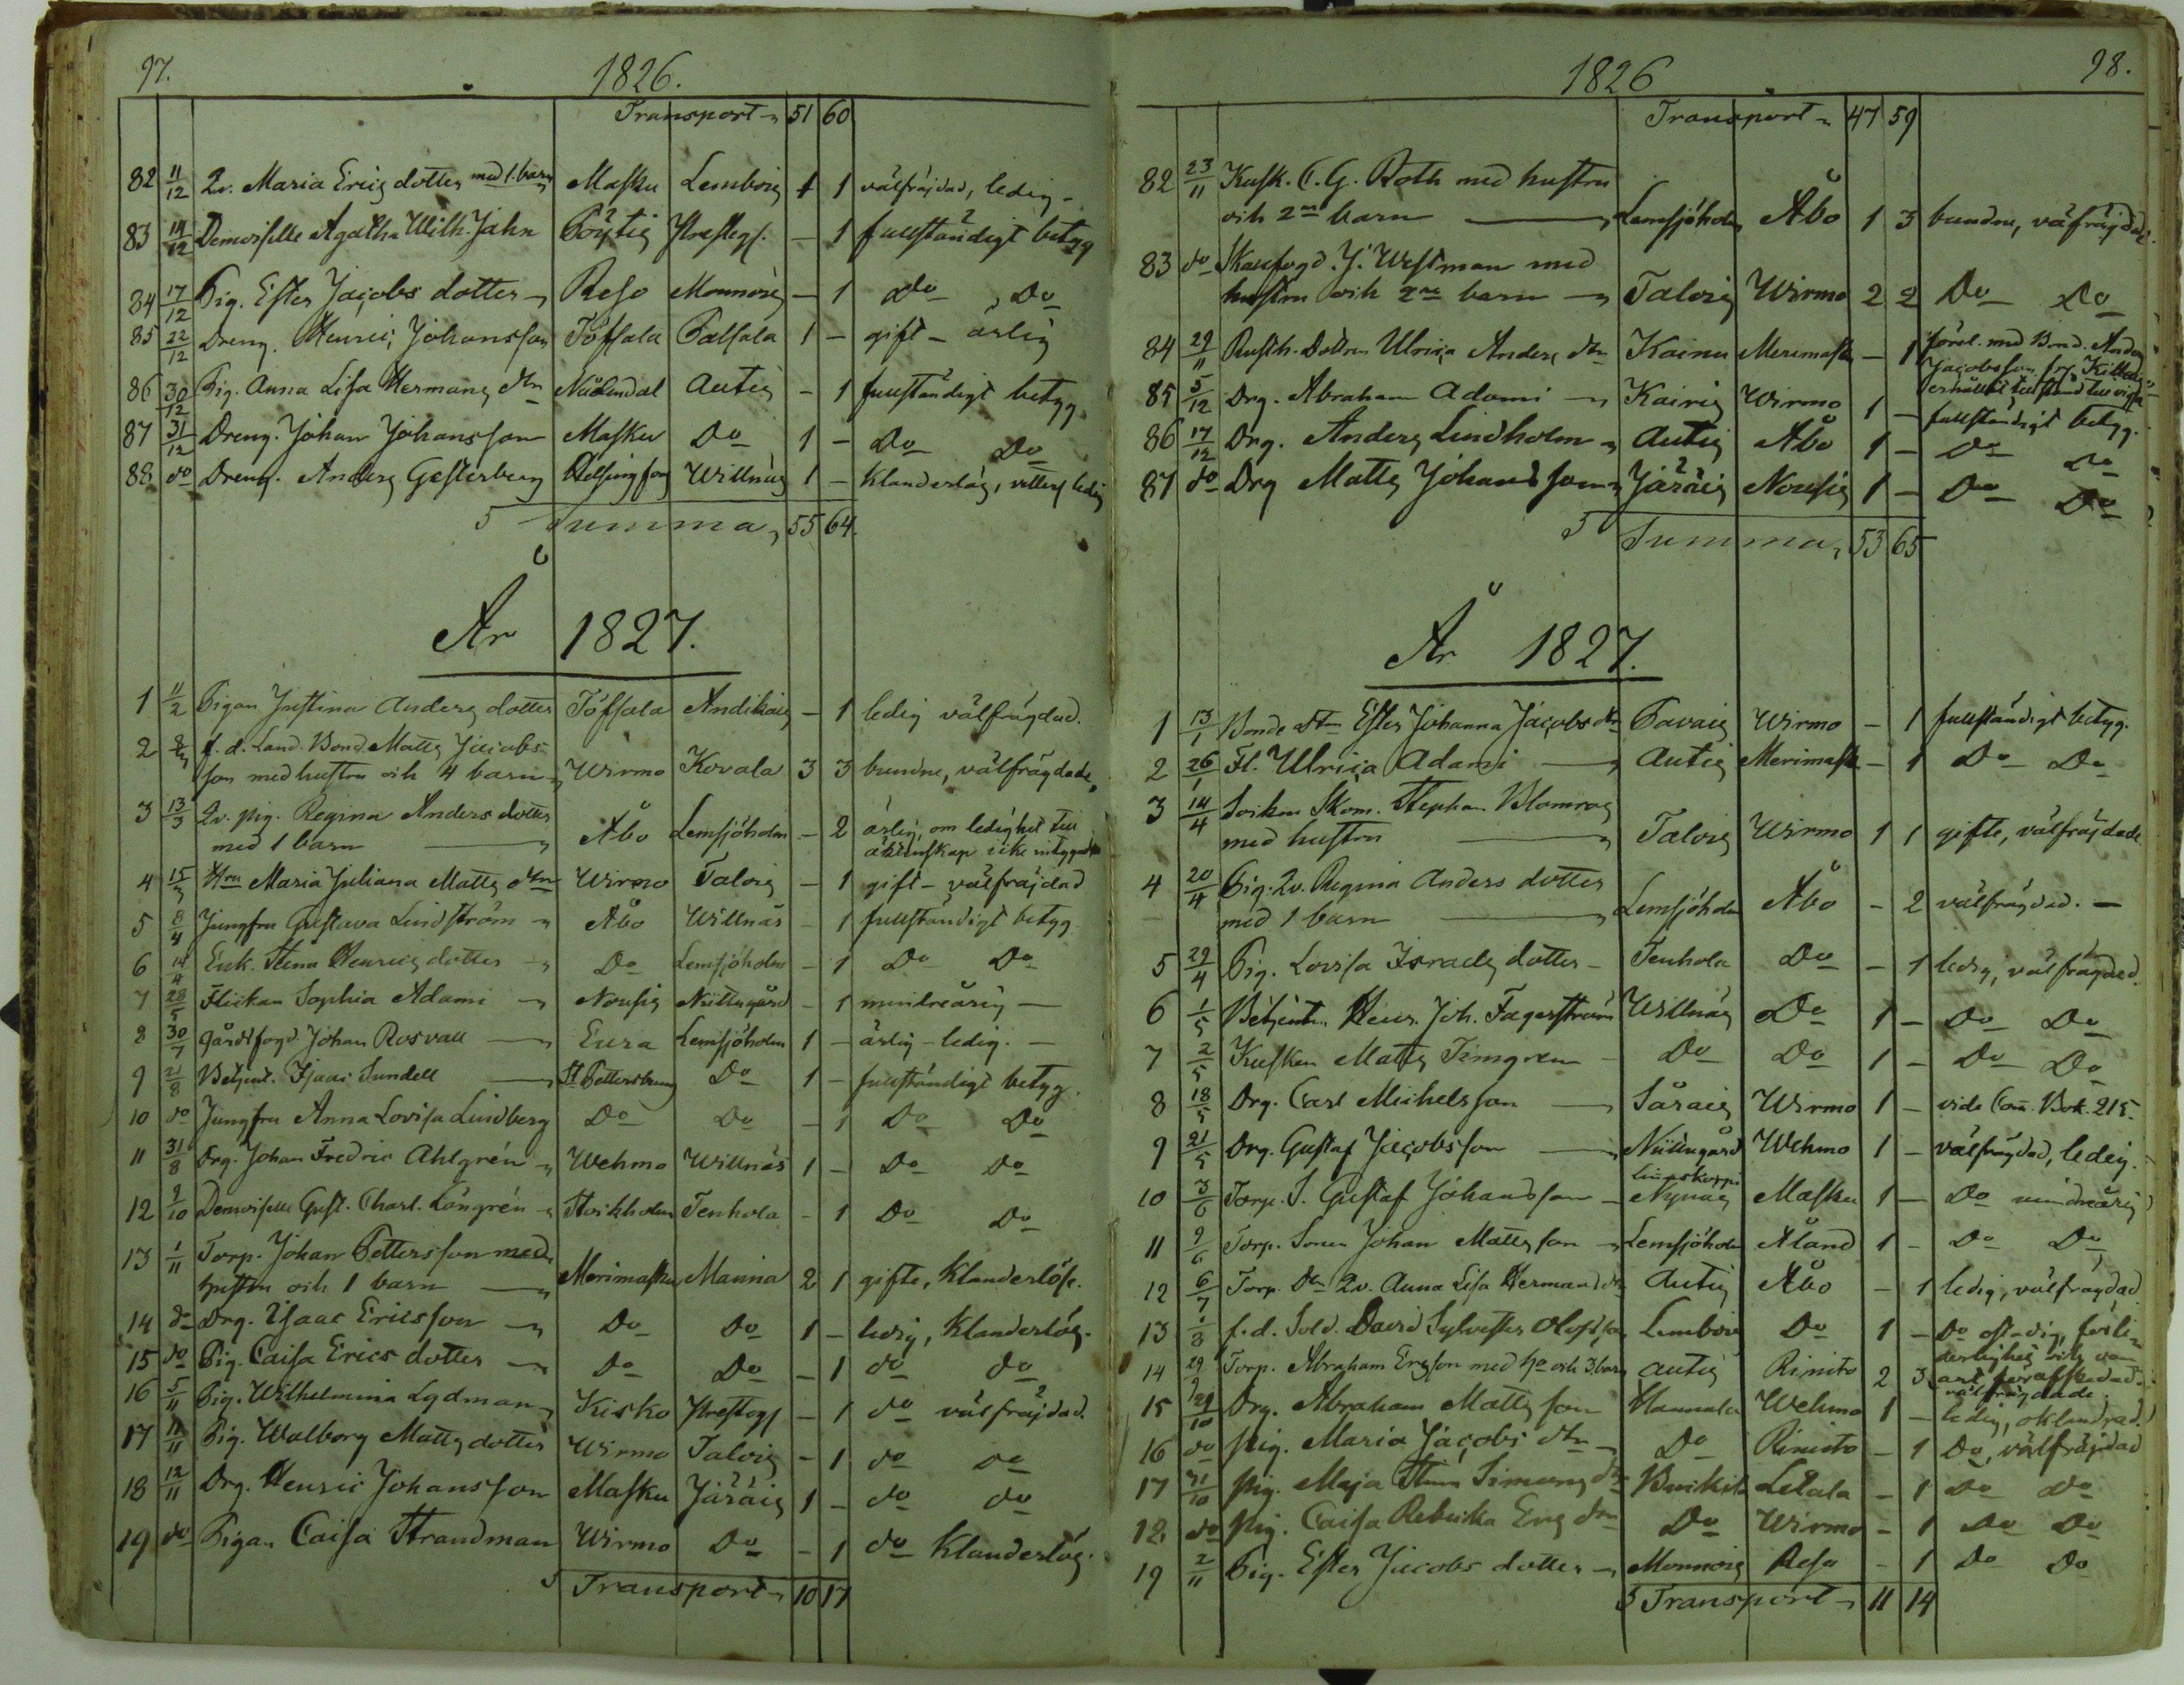 97.
1826.
Transport 51 60
82 11/12 Qv. Maria Erics dotter med 1. barn Masku Lembois 1 1 välfräjdad, ledig
83 14/12 Demoiselle Agatha Wilh. Jahn Pöytis Prestg. – 1 fullständigt betyg
84 17/12 Pig. Ester Jacobs dotter Reso Monnois – 1 Do Do
85 22/12 Dreng. Henric Johansson Töfsala Taipsala 1 – gift – ärlig
86 30/12 Pig. Anna Lisa Hermans dtr Nådendal Autis – 1 fullständigt betyg
87 31/12 Dreng. Johan Johansson Masku Do 1 – Do Do
88 do Dreng. Anders Gesterberg Helsingfors Willnäs 1 – Klanderlös, vitterl. ledig
Summa, 55 64.
År 1827.
1 11/2 Pigan Justina Anders dotter Töfsala Andikais – 1 ledig välfrägdad.
2 f. d. Land. Bond. Matts Jacobs
son med hustru och 4 barn Wirmo Kovala 3 3 bundne, välfrägdade,
3 13/3 Qv. pig. Regina Anders dotter
med 1 barn Åbo Lemsjöholm – 2 ärlig, om ledighet till
äktenskap icke intygadt
4 15/3 Hru Maria Juliana Matts dtr Wirmo Talois – 1 gift – välfräjdad
5 8/4 Jungfru Gustava Lindström Åbo Willnäs – 1 fullständigt betyg
6 14/4 Enk. Stina Henrics dotter Do Lemsjöholm – 1 Do Do
7 28/5 Flickan Sophia Adami Nousis Niittugård – 1 mindreårig –
8 30/7 Gårdsfogd. Johan Rosvall Eura Lemsjöholm 1 – ärlig – ledig. –
9 2/8 Betjent. Isaac Sundell St Pettersburg Do 1 – fullständigt betyg.
10 do Jungfru Anna Lovisa Lindberg Do Do – 1 Do Do
11 31/8 Drg. Johan Fredric Ahlgrén Wehmo Willnäs 1 – Do Do
12 9/10 Demoiselle Gust. Charl. Löngrén Stockholm Tenhola – 1 Do Do
13 1/11 Torp. Johan Pettersson med
hustru och 1 barn Merimasku Manna 2 1 gifte, Klanderlöse.
14 do Drg. Isaac Ericsson Do Do 1 – ledig, Klanderlös.
15 do Pig. Caisa Erics dotter Do Do – 1 do do
16 5/11 Pig. Wilhelmina Lydman Kisko Prestog – 1 do välfräjdad.
17 11/11 Pig. Walborg Matts dotter Wirmo Talois – 1 do do
18 12/11 Drg. Henric Johansson Masku Järäis 1 – do do
19 do Pigan Caisa Strandman Wirmo Do – 1 do Klanderlös.
Transport 10 17
98.
1826
Transport 47 59
82 23/11 Kusk. C. G. Roth med hustru
och 2ne barn Lemsjöholm Åbo 1 3 bundne, välfrägdade.
83 do Skaufogd. J. Westman med
hustru och 2ne barn Talois Wirmo 2 2 Do Do
84 29/11 Rusth. Dottren Ulrica Anders dtr Kainu Merimask – 1 förel. med Bond. Anders
Jacobsson
85 5/12 Drg. Abraham Adami Kairis Wirmo 1 – fullständigt betyg.
86 17/12 Drg. Anders Lindholm Autis Åbo 1 – Do Do
87 do Drg Matts Johansson Järäis Nousis 1 – Do Do
Summa, 53 65
År 1827.
1 13/1 Bonde dtr Ester Johanna Jacobs dtr Tavais Wirmo – 1 fullständigt betyg.
2 26/1 Fl. Ulrica Adami Autis Merimask – 1 Do Do
3 14/4 Sockn Skom. Stephan Blomros
med hustru Talois Wirmo 1 1 gifte, välfräjdade
4 20/4 Pig. Qv. Regina Anders dotter
med 1 barn Lemsjöholm Åbo – 2 välfrägdad. –
5 29/4 Pig. Lovisa Israels dotter Tenhola Do – 1 ledig, välfrägdad.
6 1/5 Betjenten Henr. Joh. Fagerström Willnäs Do 1 – Do Do
7 2/5 Kusken Matts Timgren Do Do 1 – Do Do
8 18/5 Drg. Carl Michelsson Säräis Wirmo 1 – vide Com. Bok. 215.
9 21/5 Drg. Gustaf Jacobsson Niittugård Wehmo 1 – välfrägdad, ledig.
10 3/6 Torp. S. Gustaf Johansson Nynäs Masku 1 – Do mindreårig
11 9/6 Torp. Sonen Johan Mattsson Lemsjöholm Åland 1 – Do Do
12 6/7 Torp. Dr Qv. Anna Lisa Hermans dtr Autis Åbo – 1 ledig, välfrägdad.
13 f. d. Sold. David Sylvester Olofsson Lembois Do 1 – Do
14 29/9 Torp. Abraham Ersson med ho och 3. barn Autis Rimito 2 3
välfrägdade.
15 29/10 Drg. Abraham Mattsson Hannula Wehmo 1 – ledig, oklandrad.
16 do pig. Maria Jacobs dtr Do Rimito – 1 Do, välfräjdad
17 31/10 pig. Maja Stina Simons dtr Letala – 1 Do Do
18 do pig. Caisa Rebecka Ers dtr Do Wirmo – 1 Do Do
19 2/11 Pig. Ester Jacobs dotter Monnois Reso – 1 Do Do
Transport 11 14